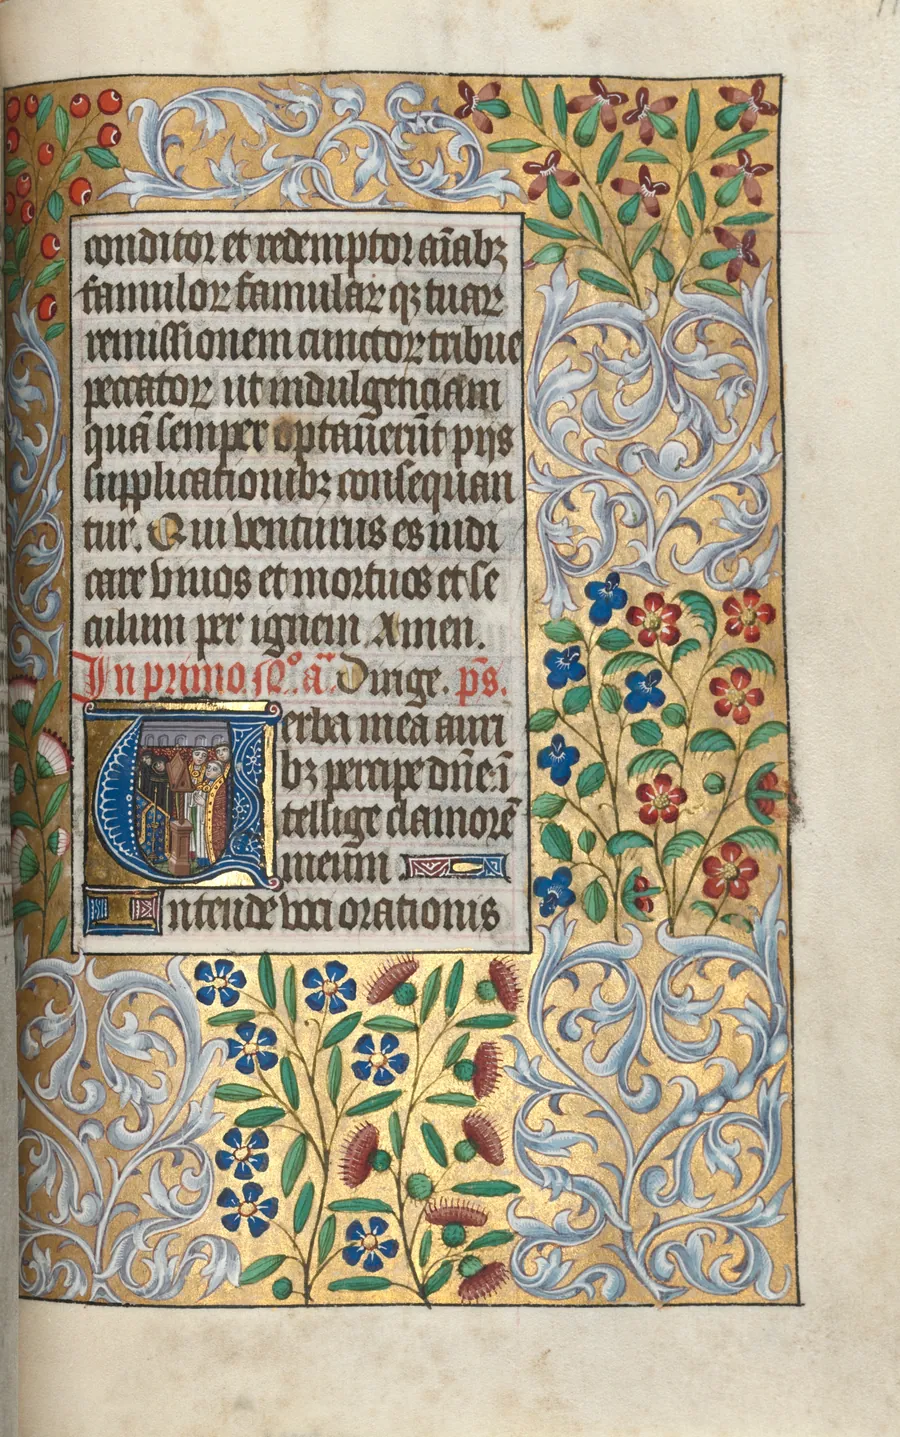 conditor et redemptor aīabꝫ
famulorꝝ famularꝝ qꝫ tuarꝝ
remissionem cunctorꝝ tribue
peccatorꝝ ut indulgenciam
quā semper optauerūt pijs
supplicationibꝫ consequan
tur. Qui venturus es iudi
care viuos et mortuos et se
culum per ignem Amen.
In primo N.º a.ā Dirige. p̄s.
Verba mea auri
bꝫ percipe dn̄e ī
tellige clamorē
meum
Intende voci orationis